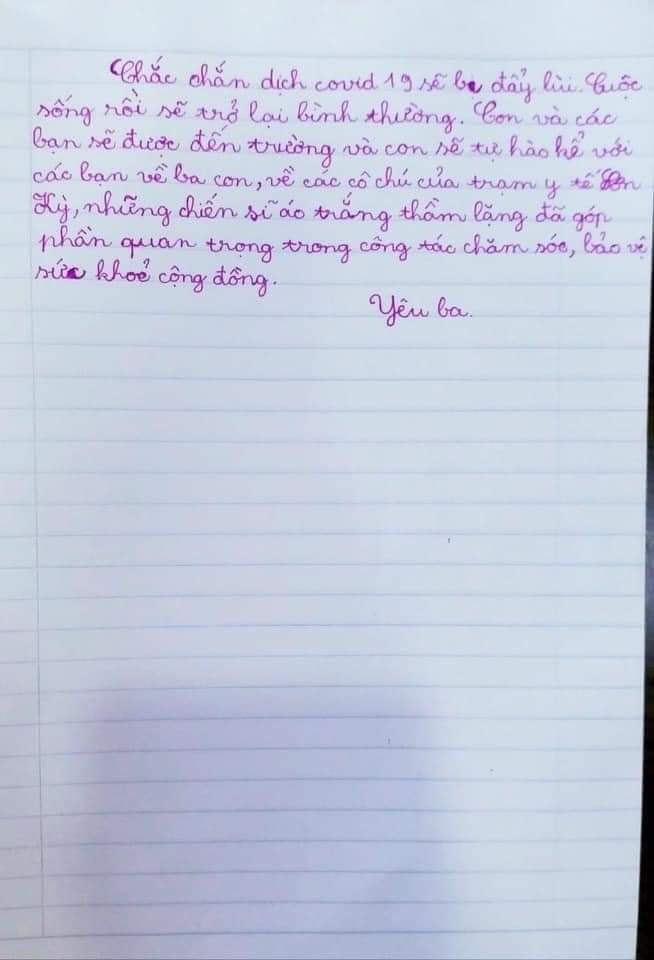 Chắc chắn dịch covid 19 sẽ bị đẩy lùi. Cuộc
sống rồi sẽ trở lại bình thường. Con và các
bạn sẽ được đến trường và con sẽ tự hào kể với
các bạn về ba con, về các cô chú của trạm y tế
Kỳ, những chiến sĩ áo trắng thầm lặng đã góp
phần quan trọng trong công tác chăm sóc, bảo vệ
sức khoẻ cộng đồng.
Yêu ba.